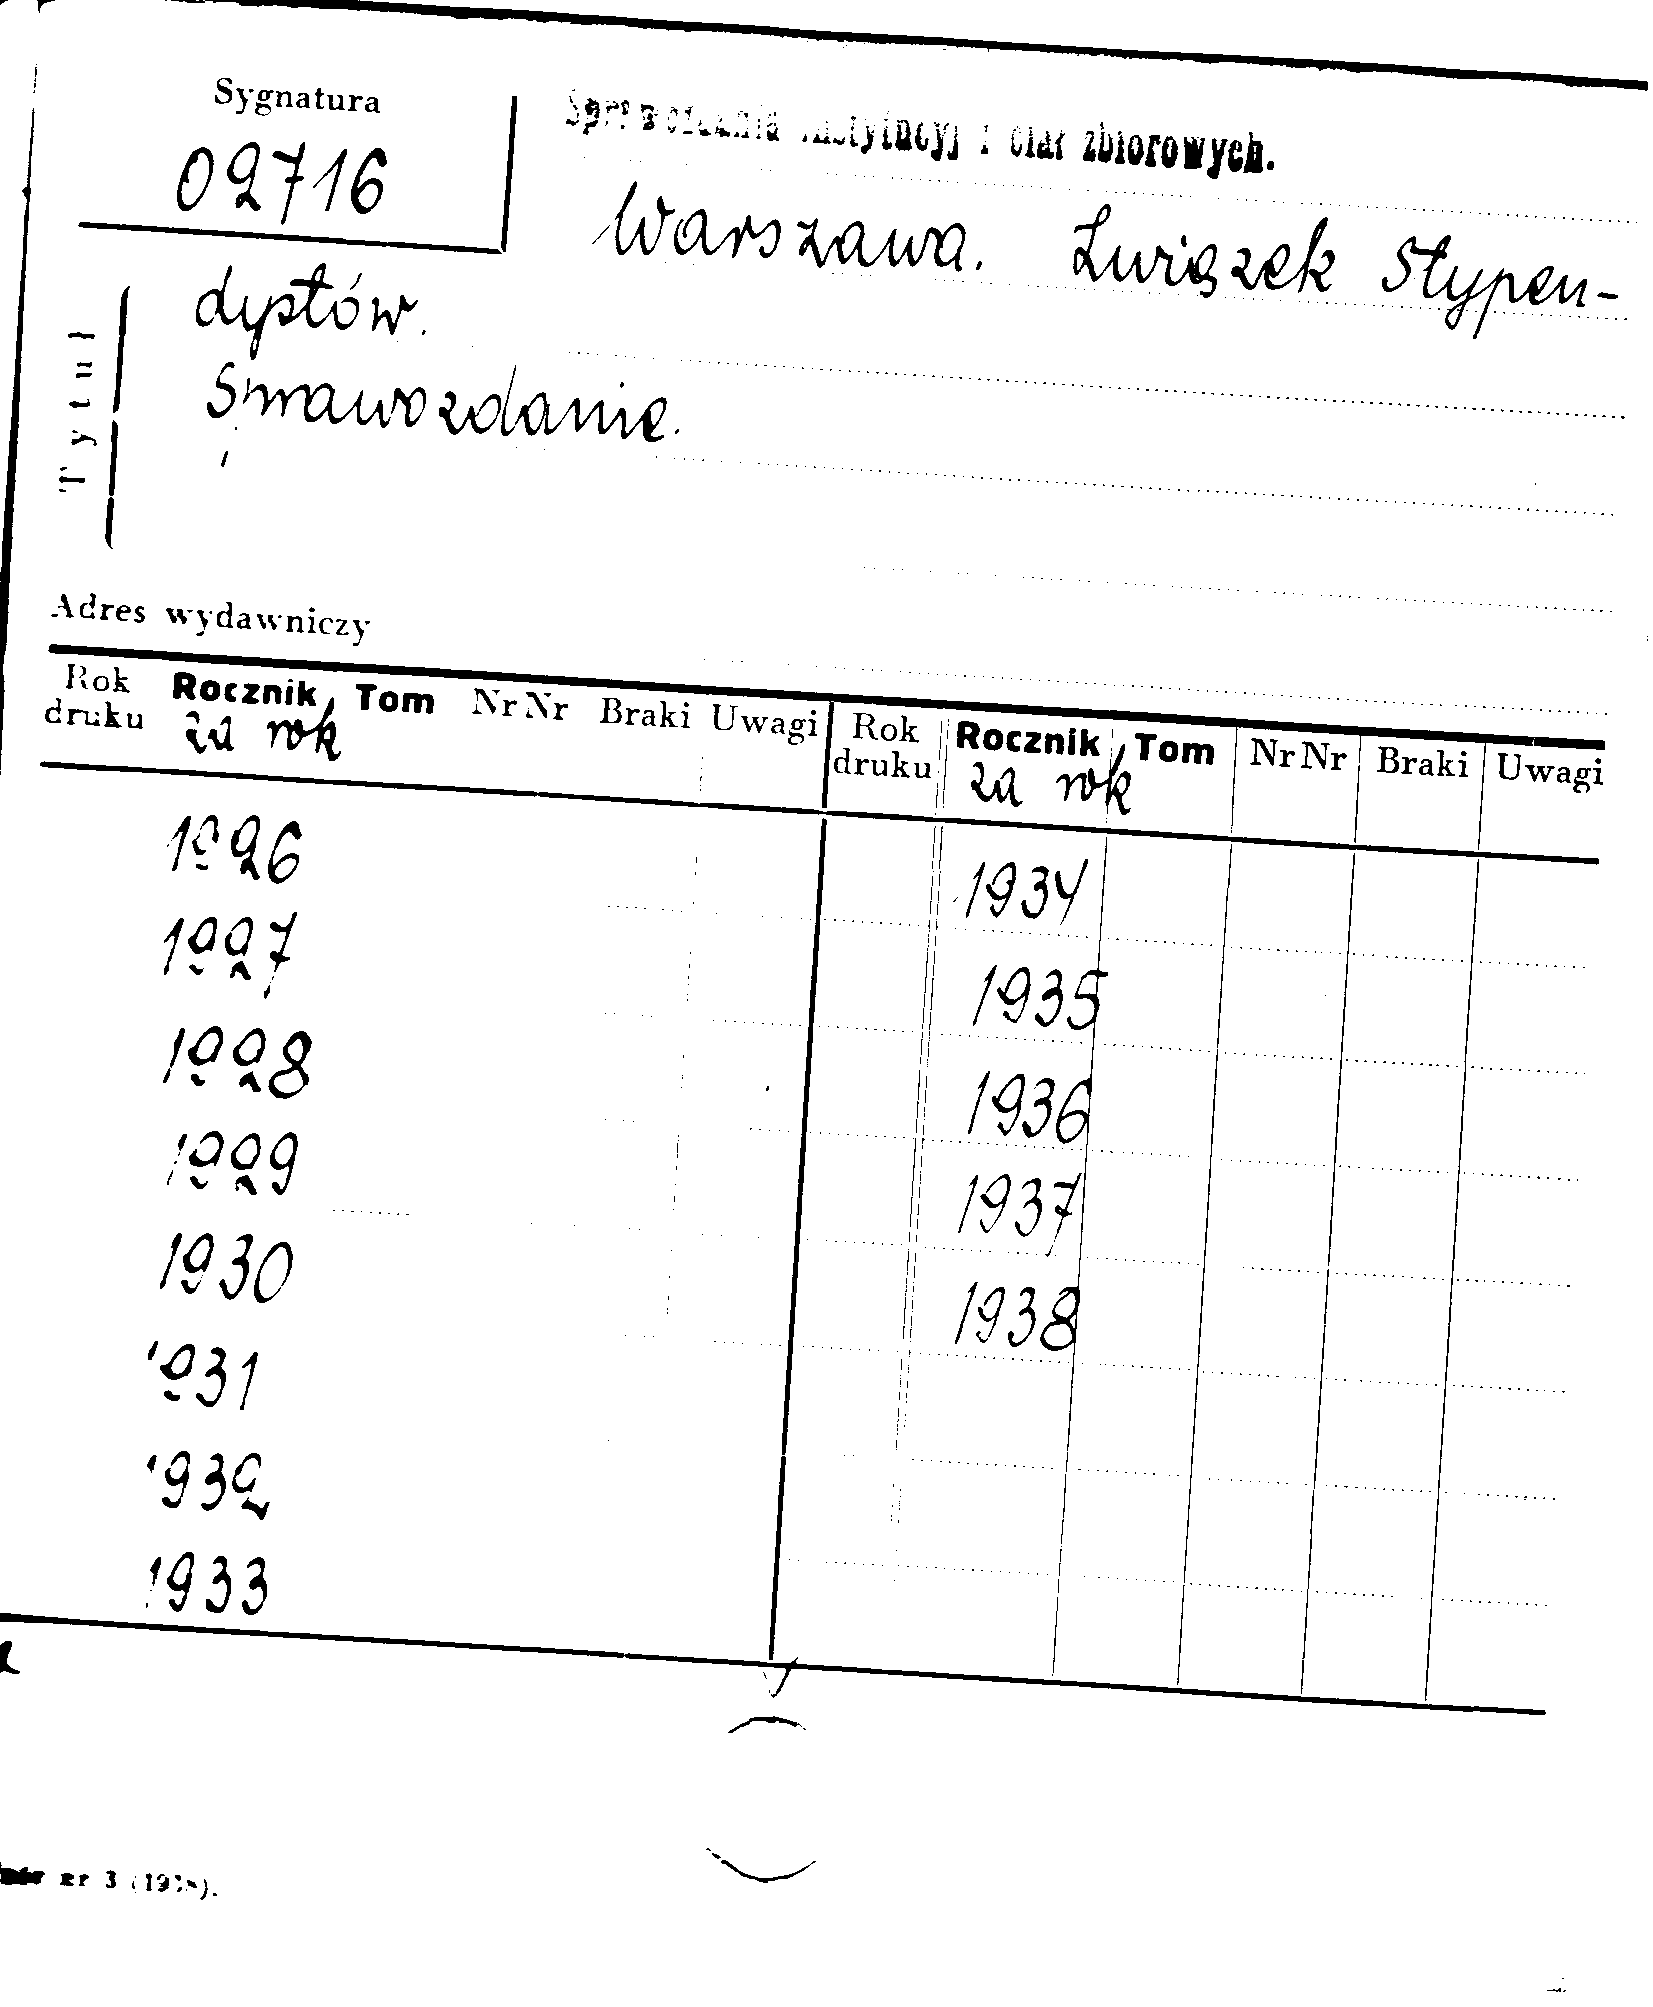 Sygnatura
02716
Sprawozdania instytucyj i ciał zbiorowych.
Warszawa. Związek Stypen-
dystów.
Sprawozdanie.
Tytuł
Adres wydawniczy
Rok druku Rocznik, Tom NrNr Braki Uwagi Rok druku Rocznik, Tom NrNr Braki Uwagi
za rok za rok
1926 1934
1927 1935
1928 1936
1929 1937
1930 1938
1931
1932
1933
nr 3